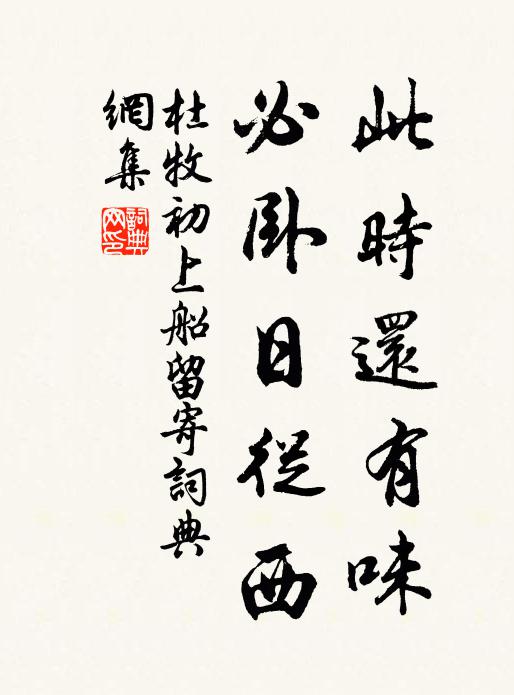 此時還有味
必臥日從西
杜牧初上船留寄詞典
網集
詞典网印